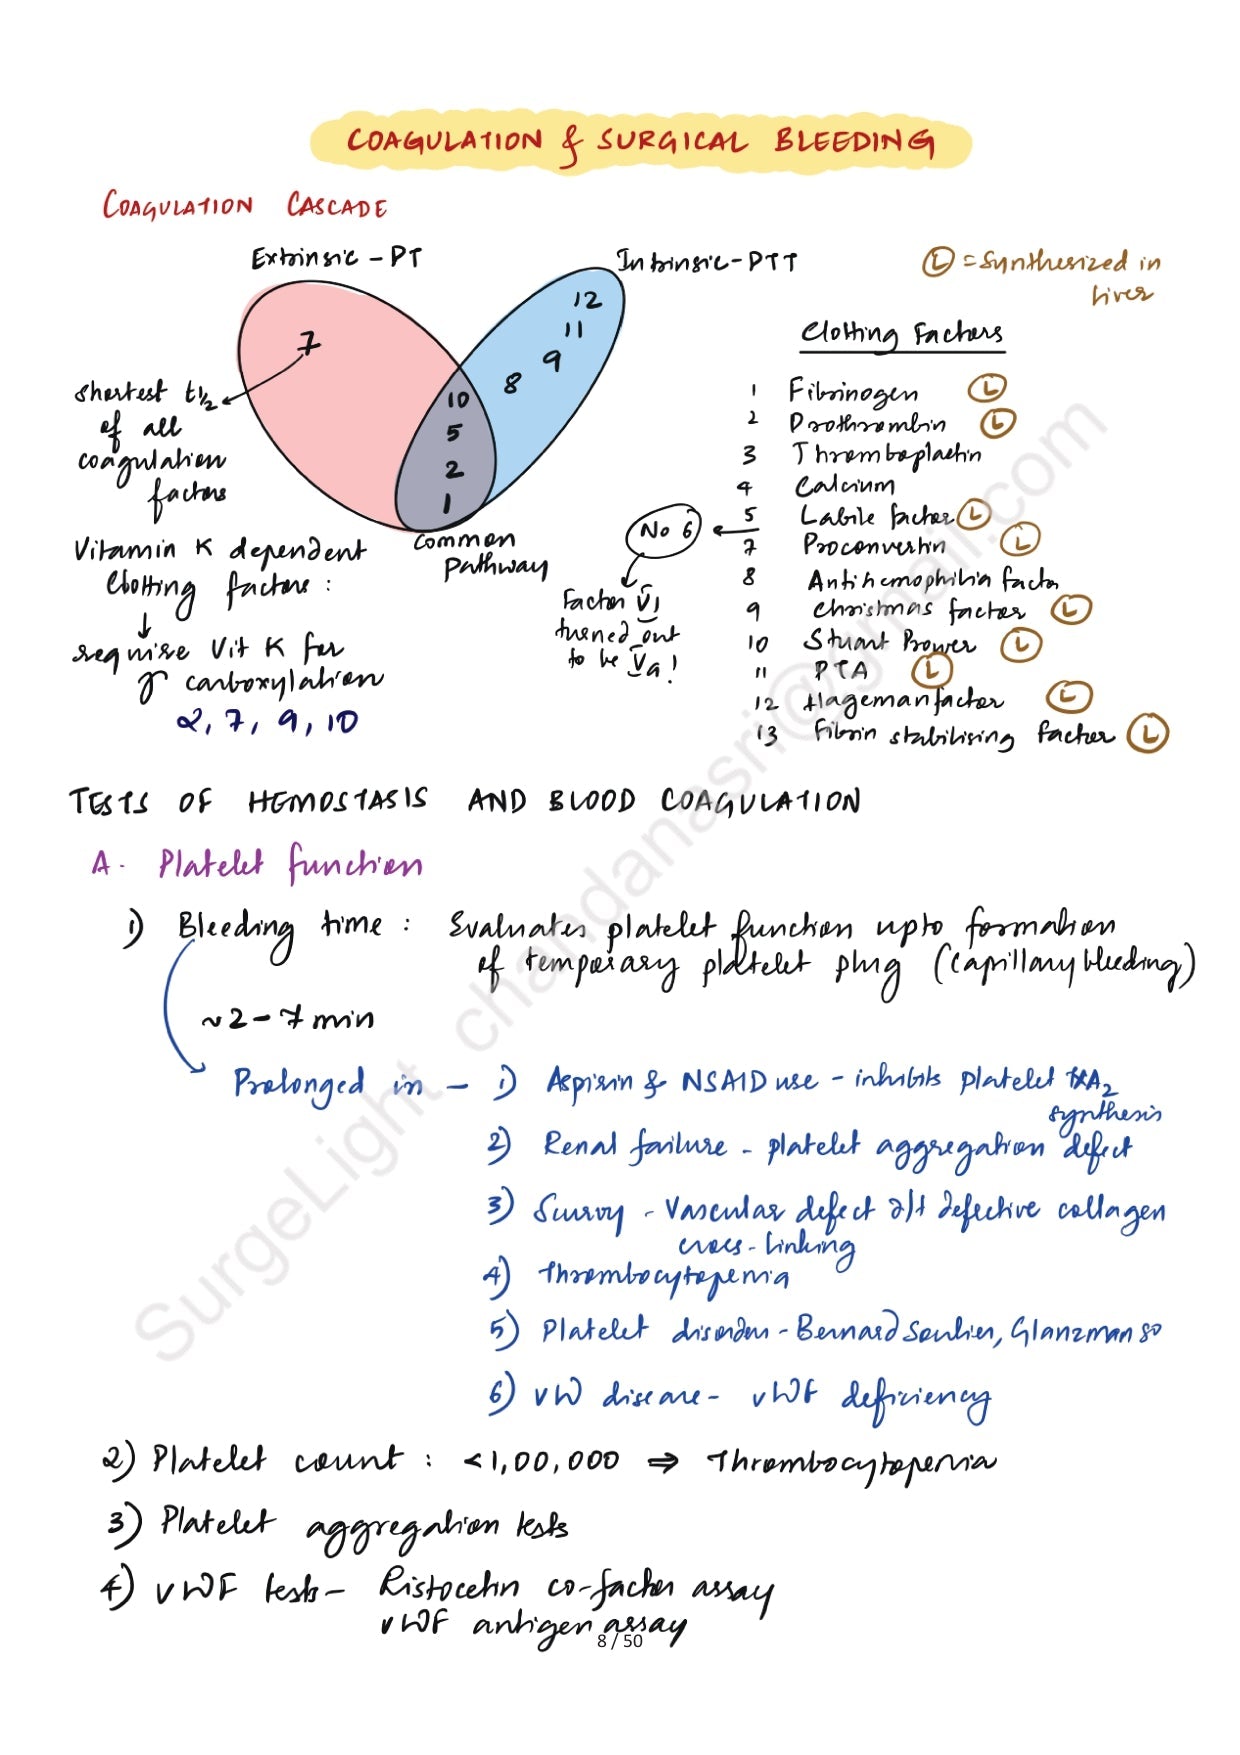 COAGULATION & SURGICAL BLEEDING
COAGULATION CASCADE
Extrinsic - PT
Intrinsic - PTT
Ⓛ = Synthesized in
liver
7
12
11
9
8
10
5
2
1
Common
Pathway
Shortest t½
of all
coagulation
factors
Vitamin K dependent
Clotting factors :
↓
require Vit K for
γ carboxylation
2, 7, 9, 10
Clotting Factors
1 Fibrinogen Ⓛ
2 Prothrombin Ⓛ
3 Thromboplastin
4 Calcium
5 Labile factor Ⓛ
No 6 ←
7 Proconvertin Ⓛ
8 Antihemophilia factor
9 Christmas factor Ⓛ
10 Stuart Prower Ⓛ
11 PTA Ⓛ
12 Hageman factor Ⓛ
13 Fibrin stabilising factor Ⓛ
Factor VI
turned out
to be Va!
TESTS OF HEMOSTASIS AND BLOOD COAGULATION
A. Platelet function
1) Bleeding time : Evaluates platelet function upto formation
of temporary platelet plug (capillary bleeding)
~ 2 - 7 min
Prolonged in - 1) Aspirin & NSAID use - inhibits platelet TXA2
synthesis
2) Renal failure - platelet aggregation defect
3) Scurvy - Vascular defect d/t defective collagen
cross-linking
4) Thrombocytopenia
5) Platelet disorders - Bernard Soulier, Glanzmann
6) vW disease - vWF deficiency
2) Platelet count : < 1,00,000 ⇒ Thrombocytopenia
3) Platelet aggregation tests
4) vWF tests - Ristocetin co-factor assay
vWF antigen assay
8 / 50
SurgeLight chandanasri@gmail.com